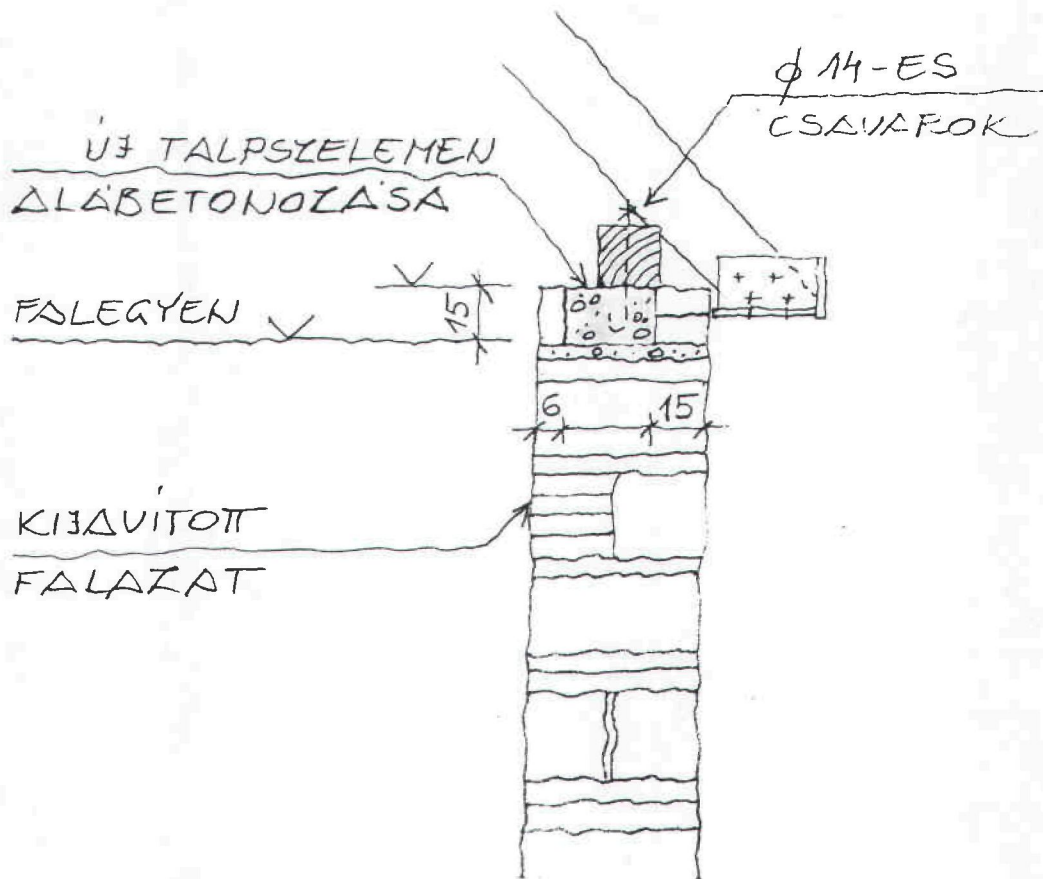 ϕ 14-ES
CSAVAROK
ÚJ TALPSZELEMEN
ALÁBETONOZÁSA
15
FALEGYEN
6 15
KIJAVÍTOTT
FALAZAT